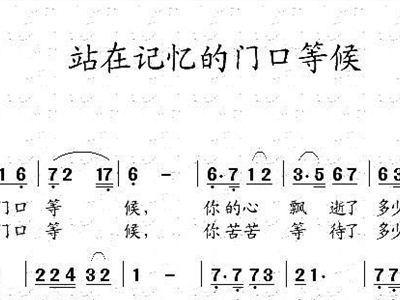 站在记忆的门口等候
1 6 | 7 2 1 7 | 6 - | 6·7 1 2 | 3·5 6 7 | 6 3
门口 等 候， 你的心 飘 逝了 多少
门口 等 候， 你苦苦 等 待了 多少
| 2 2 2 4 3 2 | 1 - | 7·7 7 3 | 2 1· | 7 7 6